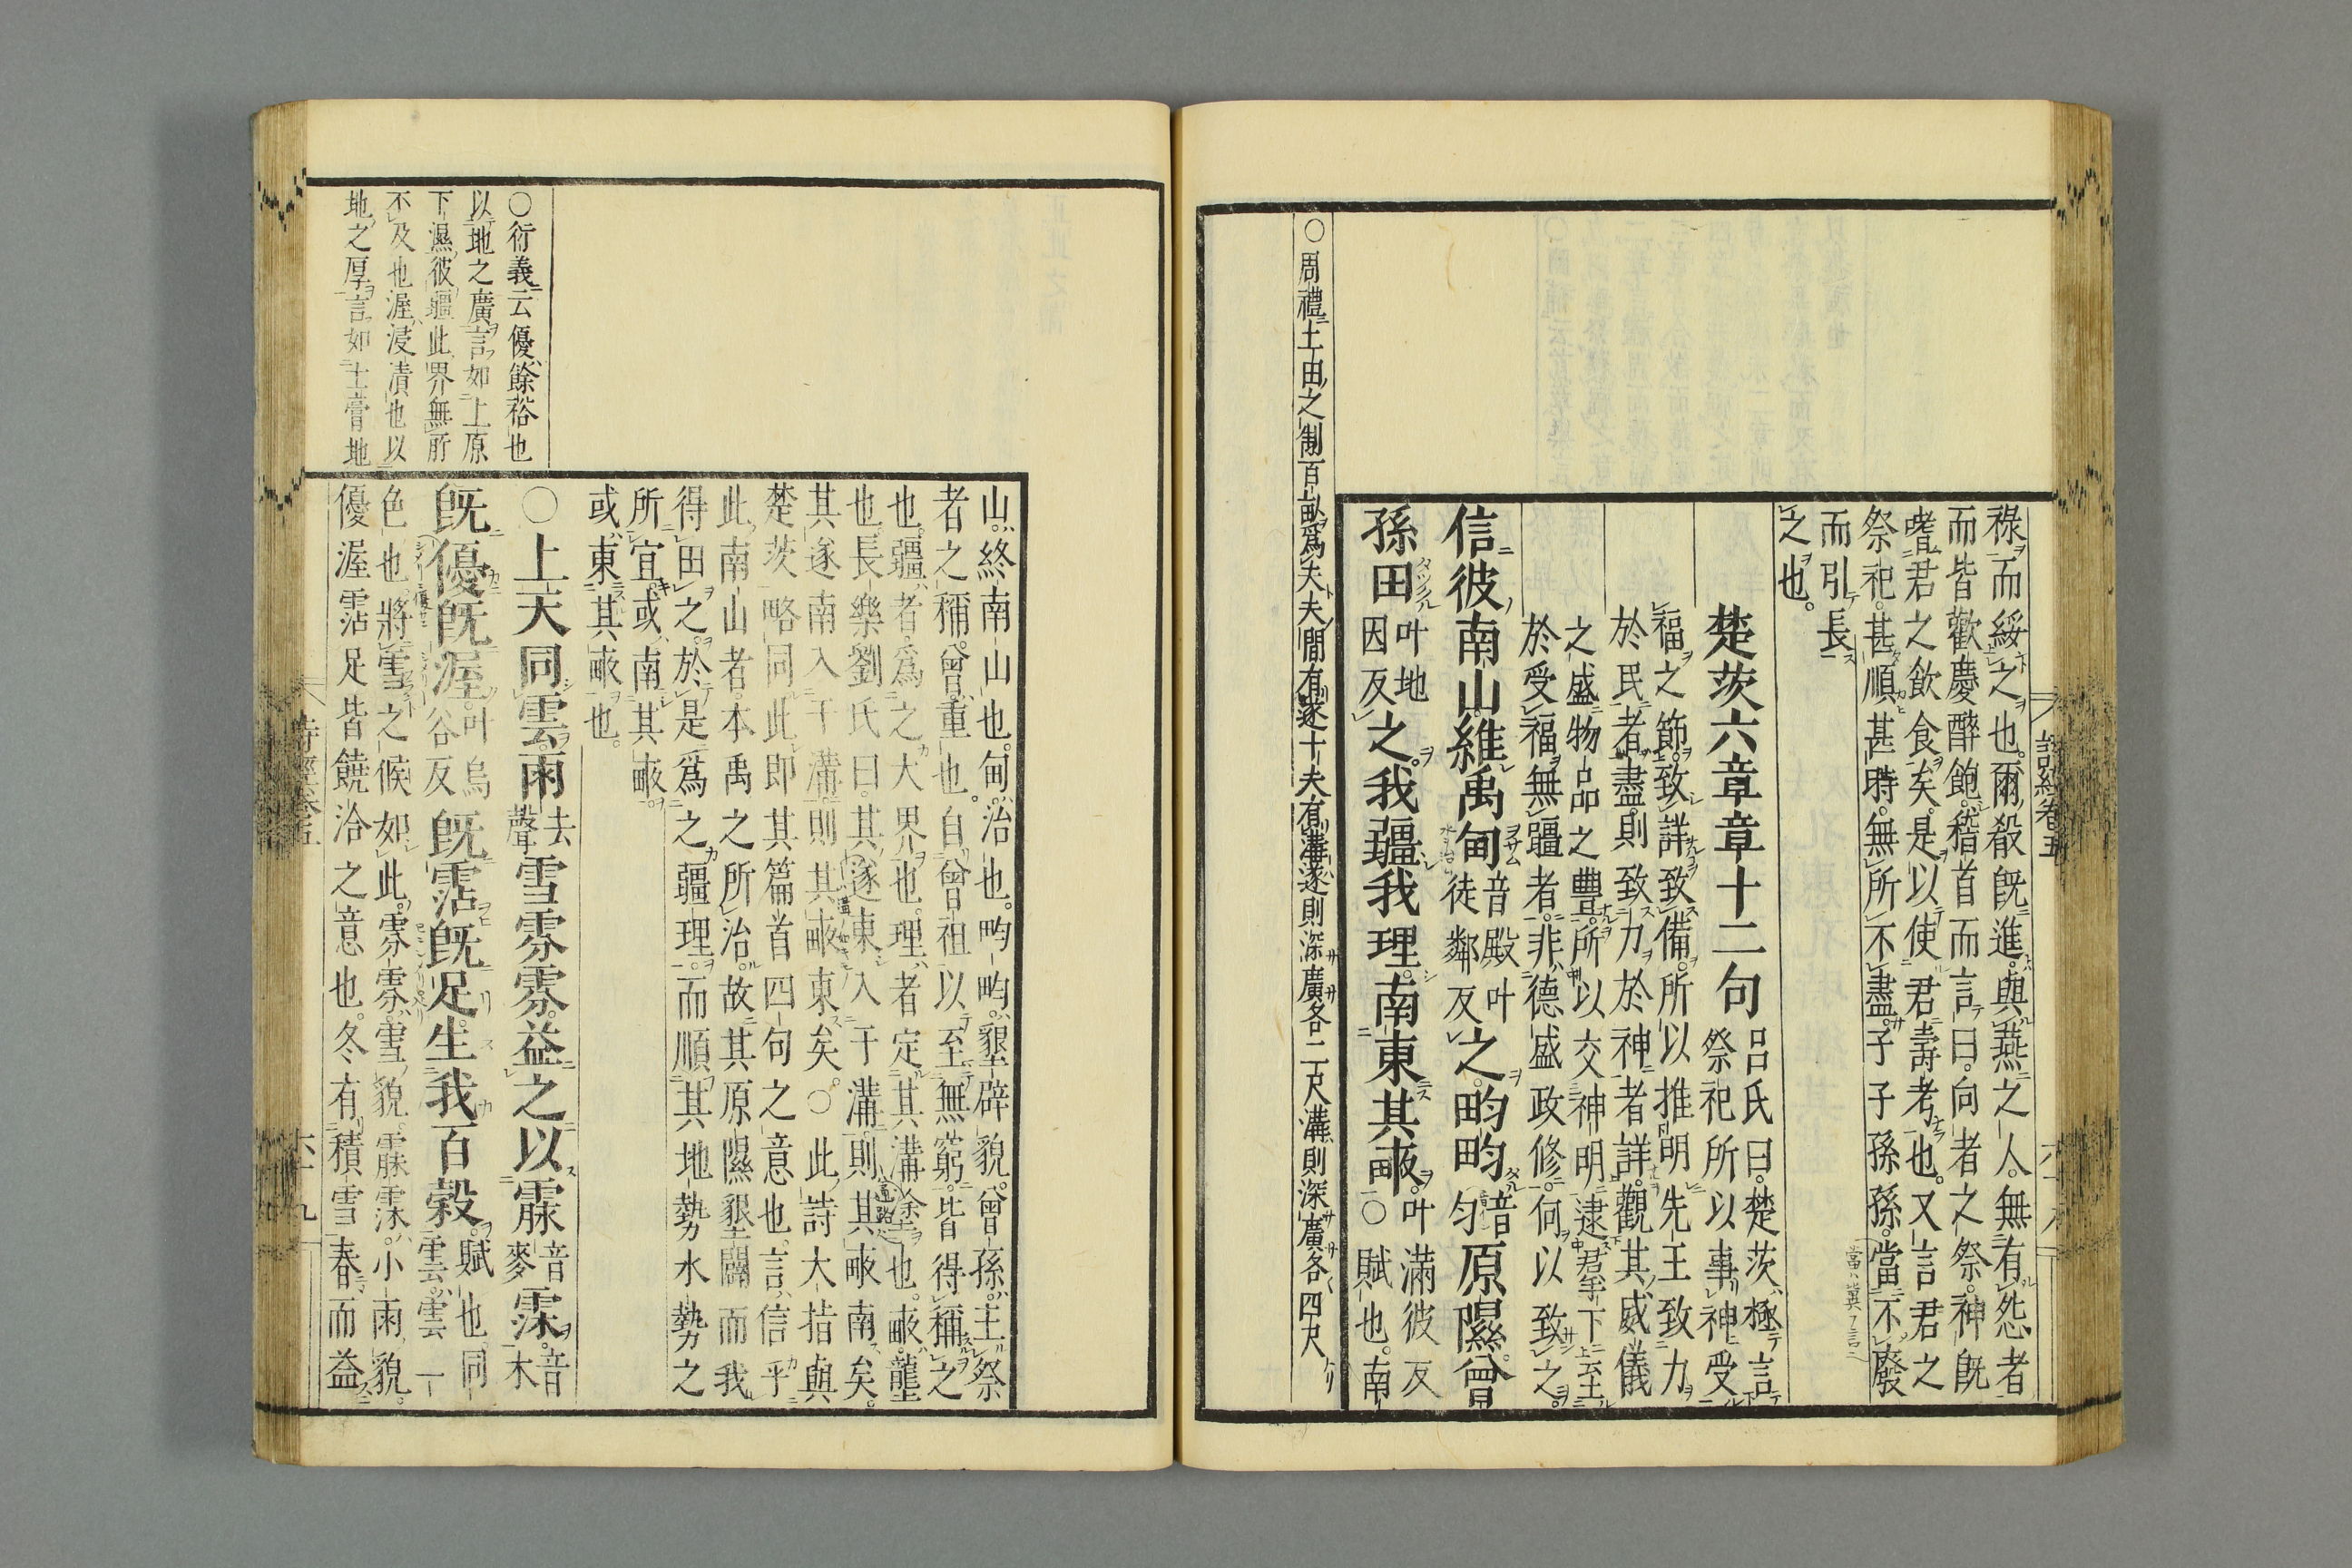 祿而綏之也。爾殽旣進。與燕之人。無有怨者
而皆歡慶醉飽。稽首而言曰。向者之祭。神旣
嗜君之飲食矣。是以使君壽考也。又言君之
祭祀。甚順甚時。無所不盡。子子孫孫。當不廢
而引長
之也。
楚茨六章章十二句
呂氏曰。楚茨極言
祭祀所以事神受
福之節。致詳致備。所以推明先王致力
於民者盡。則致力於神者詳。觀其威儀
之盛物品之豐。所以交神明逮羣下至
於受福無疆者。非德盛政修。何以致之。
信彼南山。維禹甸
音殿叶
徒鄰反
之。畇畇
音
匀
原隰。曾
孫田
叶地
因反
之。我疆我理。南東其畝。
叶滿彼反
○賦也。南
○周禮土田之制百畝爲夫夫間有遂十夫有溝遂則深廣各二尺溝則深廣各四尺
詩經卷五
六十八
山。終南山也。甸。治也。畇畇。墾辟貌。曾孫。主祭
者之稱。曾。重也。自曾祖以至無窮。皆得稱之
也。疆者。爲之大界也。理者定其溝塗也。畝。壟
也。長樂劉氏曰。其遂東入于溝。則其畝南矣。
其遂南入于溝。則其畝東矣。○此詩大指與
楚茨略同。此即其篇首四句之意也。言信乎
此南山者。本禹之所治。故其原隰墾闢。而我
得田之。於是爲之疆理。而順其地勢水勢之
所宜。或南其畝。
或東其畝也。
○上天同雲。雨
去
聲
雪雰雰。益之以霡
音
麥
霂。
音
木
旣優旣渥。
叶烏
谷反
旣霑旣足。生我百穀。
賦也。同
雲。雲一
色也。將雪之候如此。雰雰。雪貌。霡霂。小雨貌。
優渥霑足。皆饒洽之意也。冬有積雪。春而益
○衍義云優餘裕也
以地之廣言如上原
下濕彼疆此界無所
不及也渥浸漬也以
地之厚言如土膏地
詩經卷五
六十九